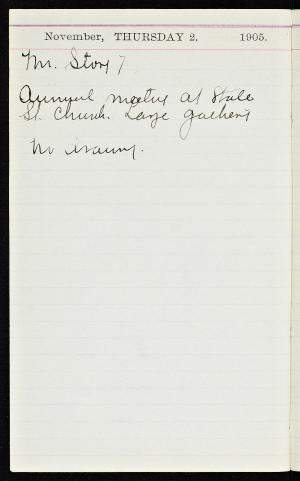 November, THURSDAY 2. 1905.
Mr. Story 7
Annual meeting at State
St. Church. Large gathering
No